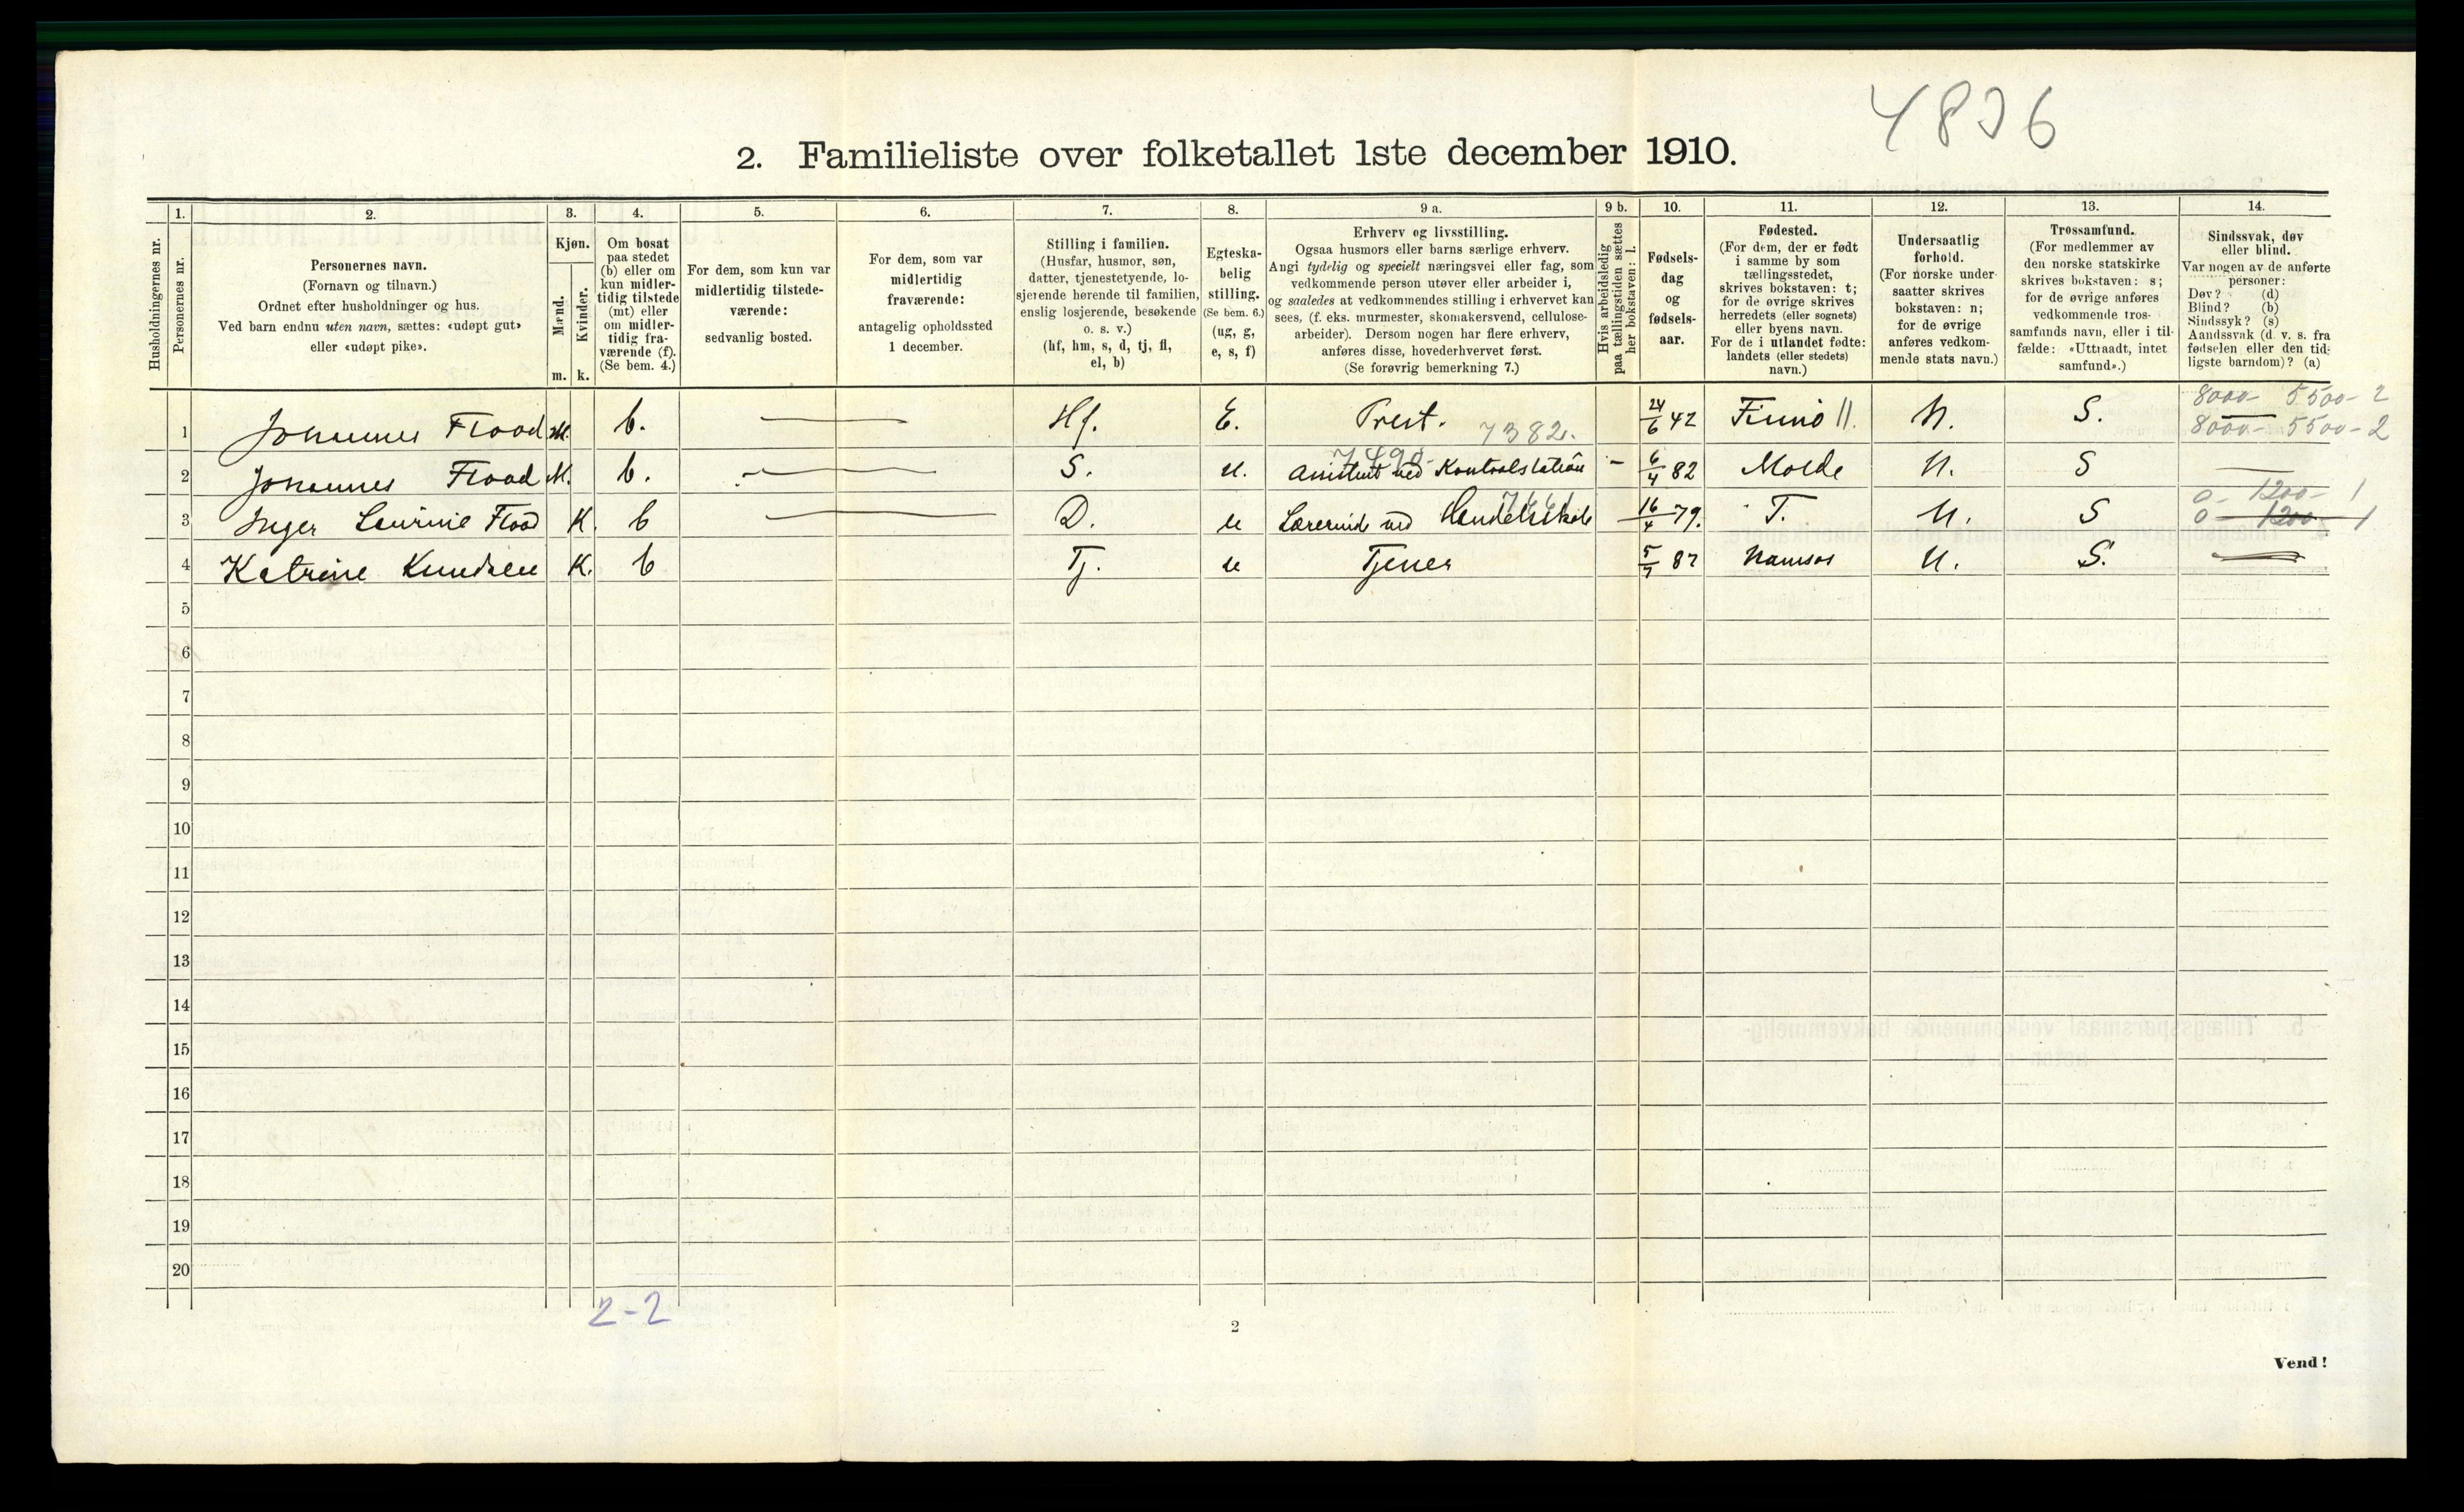 4836
2. Familieliste over folketallet 1ste december 1910.
Husholdningernes nr.
1.
Personernes nr.
2.
Personernes navn.
(Fornavn og tilnavn.)
Ordnet efter husholdninger og hus.
Ved barn endnu uten navn, sættes: «udøpt gut»
eller «udøpt pike».
3.
Kjøn.
Mænd.
Kvinder.
m. k.
4.
Om bosat
paa stedet
(b) eller om
kun midler-
tidig tilstede
(mt) eller
om midler-
tidig fra-
værende (f).
(Se bem. 4.)
5.
For dem, som kun var
midlertidig tilstede-
værende:
sedvanlig bosted.
6.
For dem, som var
midlertidig
fraværende:
antagelig opholdssted
1 december.
7.
Stilling i familien.
(Husfar, husmor, søn,
datter, tjenestetyende, lo-
sjerende hørende til familien,
enslig losjerende, besøkende
o. s. v.)
(hf, hm, s, d, tj, fl,
el, b)
8.
Egteska-
belig
stilling.
(Se bem. 6.)
(ug, g,
e, s, f)
9 a.
Erhverv og livsstilling.
Ogsaa husmors eller barns særlige erhverv.
Angi tydelig og specielt næringsvei eller fag, som
vedkommende person utøver eller arbeider i,
og saaledes at vedkommendes stilling i erhvervet kan
sees, (f. eks. murmester, skomakersvend, cellulose-
arbeider). Dersom nogen har flere erhverv,
anføres disse, hovederhvervet først.
(Se forøvrig bemerkning 7.)
9 b.
Hvis arbeidsledig
paa tællingstiden sættes
her bokstaven: l.
10.
Fødsels-
dag
og
fødsels-
aar.
11.
Fødested.
(For dem, der er født
i samme by som
tællingsstedet,
skrives bokstaven: t;
for de øvrige skrives
herredets (eller sognets)
eller byens navn.
For de i utlandet fødte:
landets (eller stedets)
navn.)
12.
Undersaatlig
forhold.
(For norske under-
saatter skrives
bokstaven: n;
for de øvrige
anføres vedkom-
mende stats navn.)
13.
Trossamfund.
(For medlemmer av
den norske statskirke
skrives bokstaven: s;
for de øvrige anføres
vedkommende tros-
samfunds navn, eller i til-
fælde: «Uttraadt, intet
samfund».)
14.
Sindssvak, døv
eller blind.
Var nogen av de anførte
personer:
Døv? (d)
Blind? (b)
Sindssyk? (s)
Aandssvak (d. v. s. fra
fødselen eller den tid-
ligste barndom)? (a)
8000- 5500-2
1 Johannes Flood M. b. Hf. E. Prest. 7382. 24/6 42 Finnø 11. N. S. 8000- 5500-2
7490-
2 Johannes Flood M. b. S. u. Assistent ved Kontrolstation - 6/4 82 Molde N. S
0- 1200- 1
3 Inger Laurine Flood K. b D. u Lærerinde ved Handelsskole 16/4 79. T. N. S 0- 1200- 1
4 Katrine Knudsen K. b Tj. u Tjener 5/7 87 Namsos N. S.
5
6
7
8
9
10
11
12
13
14
15
16
17
18
19
20
2-2
2
Vend!